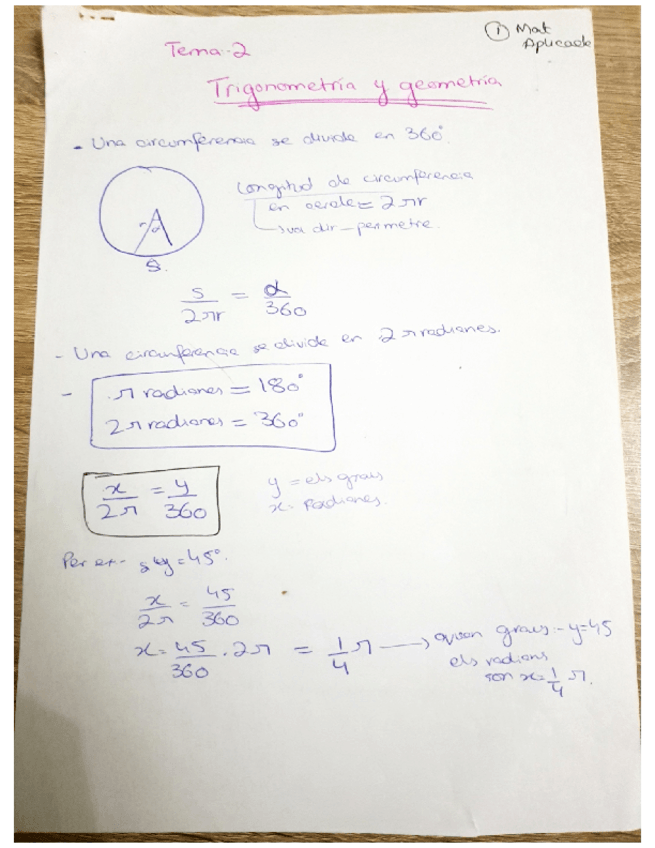 ① Mat
Aplicade
Tema-2
Trigonometría y geometría
- Una circumferencia se divide en 360°.
Longitud de circumferencia
en cercle = 2πr
→ vol dir - perimetre.
α
S.
s/2πr = α/360
- Una circunferencia se divide en 2π radianes.
- π radianes = 180°
2π radianes = 360°
x/2π = y/360
y = els graus
x = Radianes.
Per ex:- si y = 45°.
x/2π = 45/360
x = 45/360 · 2π = 1/4 π → quan graus:- y=45
els radians
son x = 1/4 π.